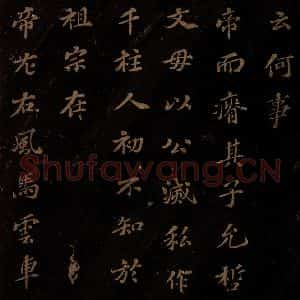 云何事
帝而瘠其子允哲
文母以公滅私作
千柱人初不知於
祖宗在
帝左右風馬雲車
Shufawang.CN